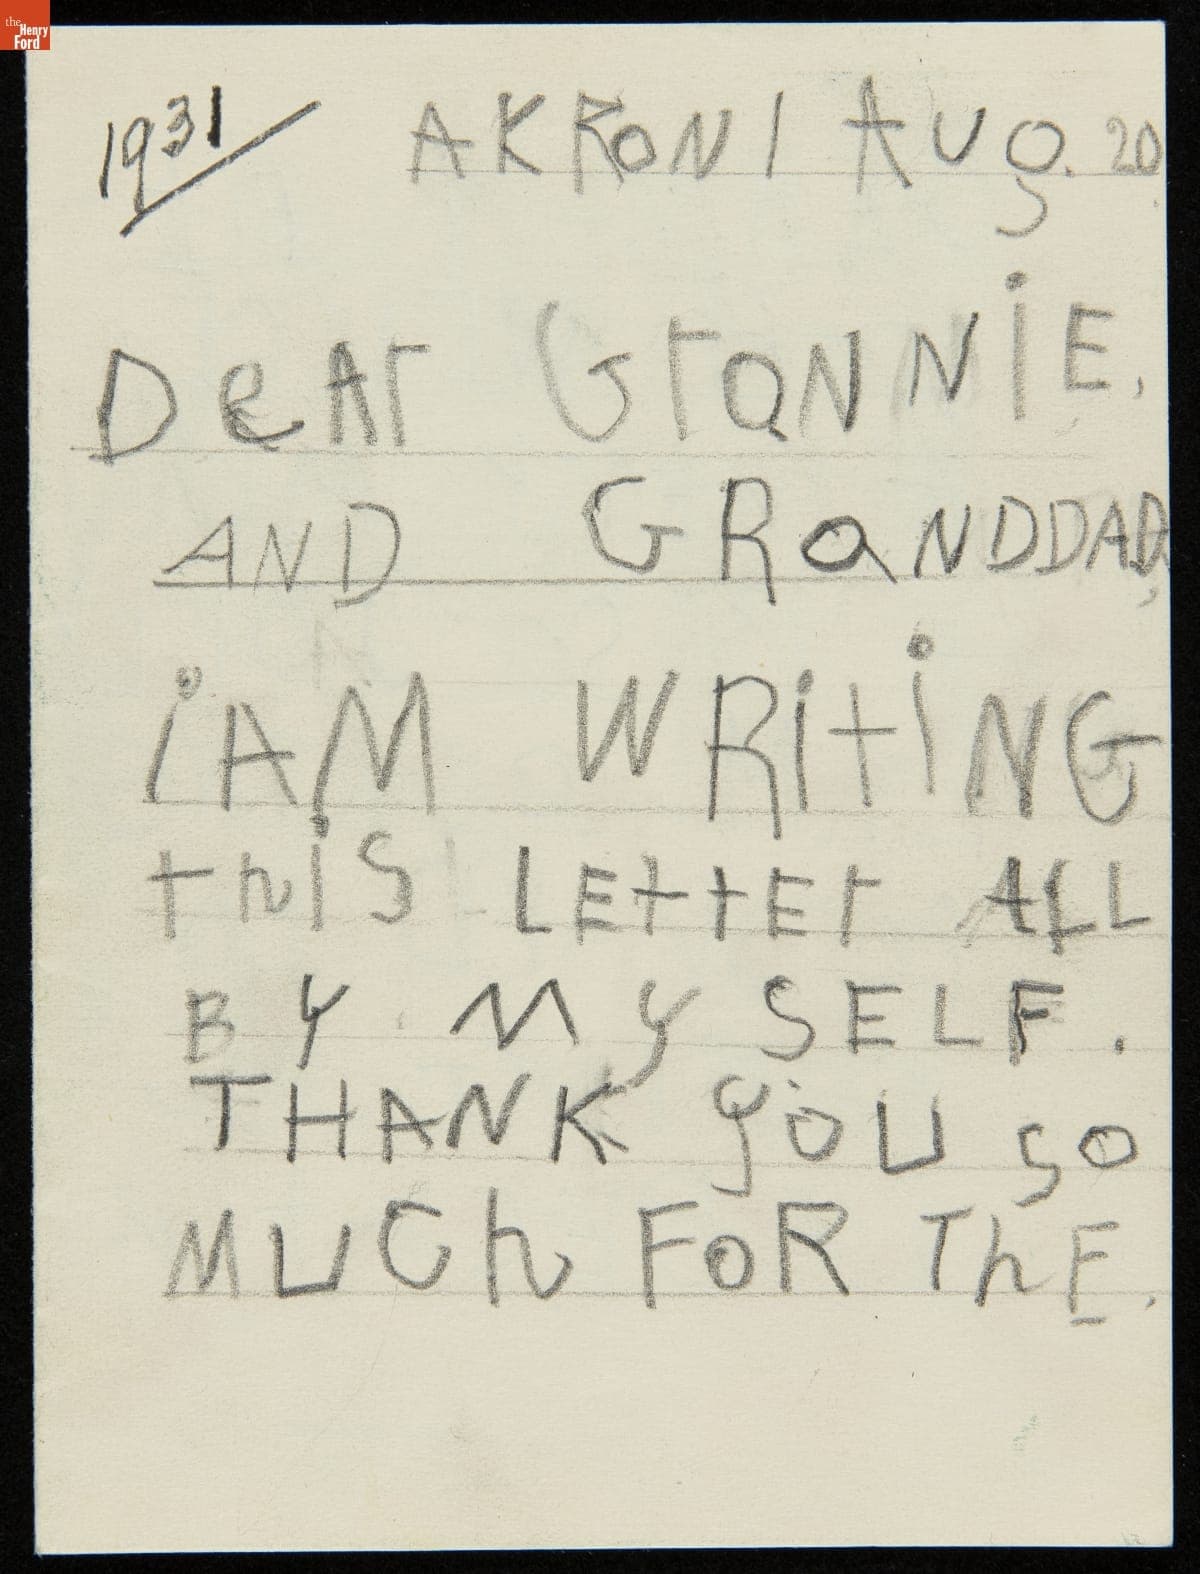 the Henry Ford
1931 AKRON, AUg. 20
DeAr GranNiE,
AND GRaNDDAD,
iAM WRitiNG
thiS LEttEr ALL
BY MYSELF.
THANK YOU SO
MUCh FOR ThE.